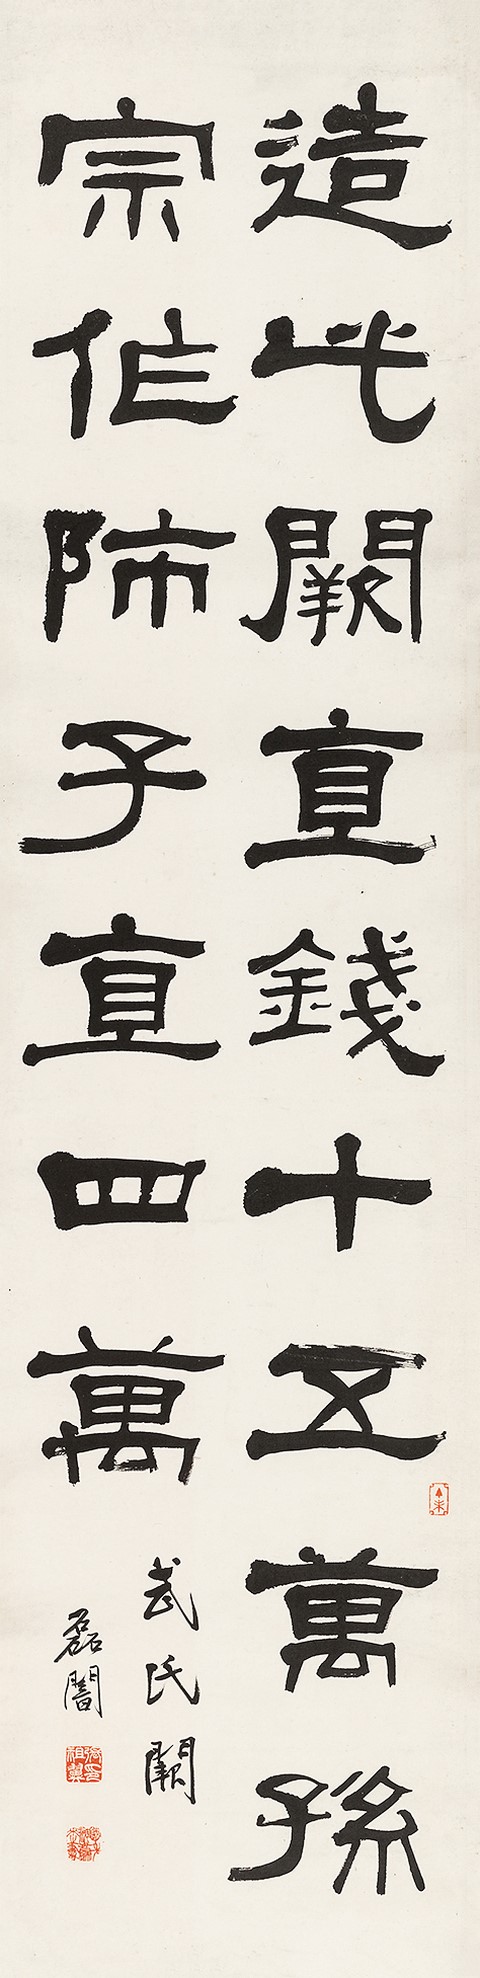 造此闕直錢十五萬孫
宗作師子直四萬
武氏闕
磊闇
張祖翼印